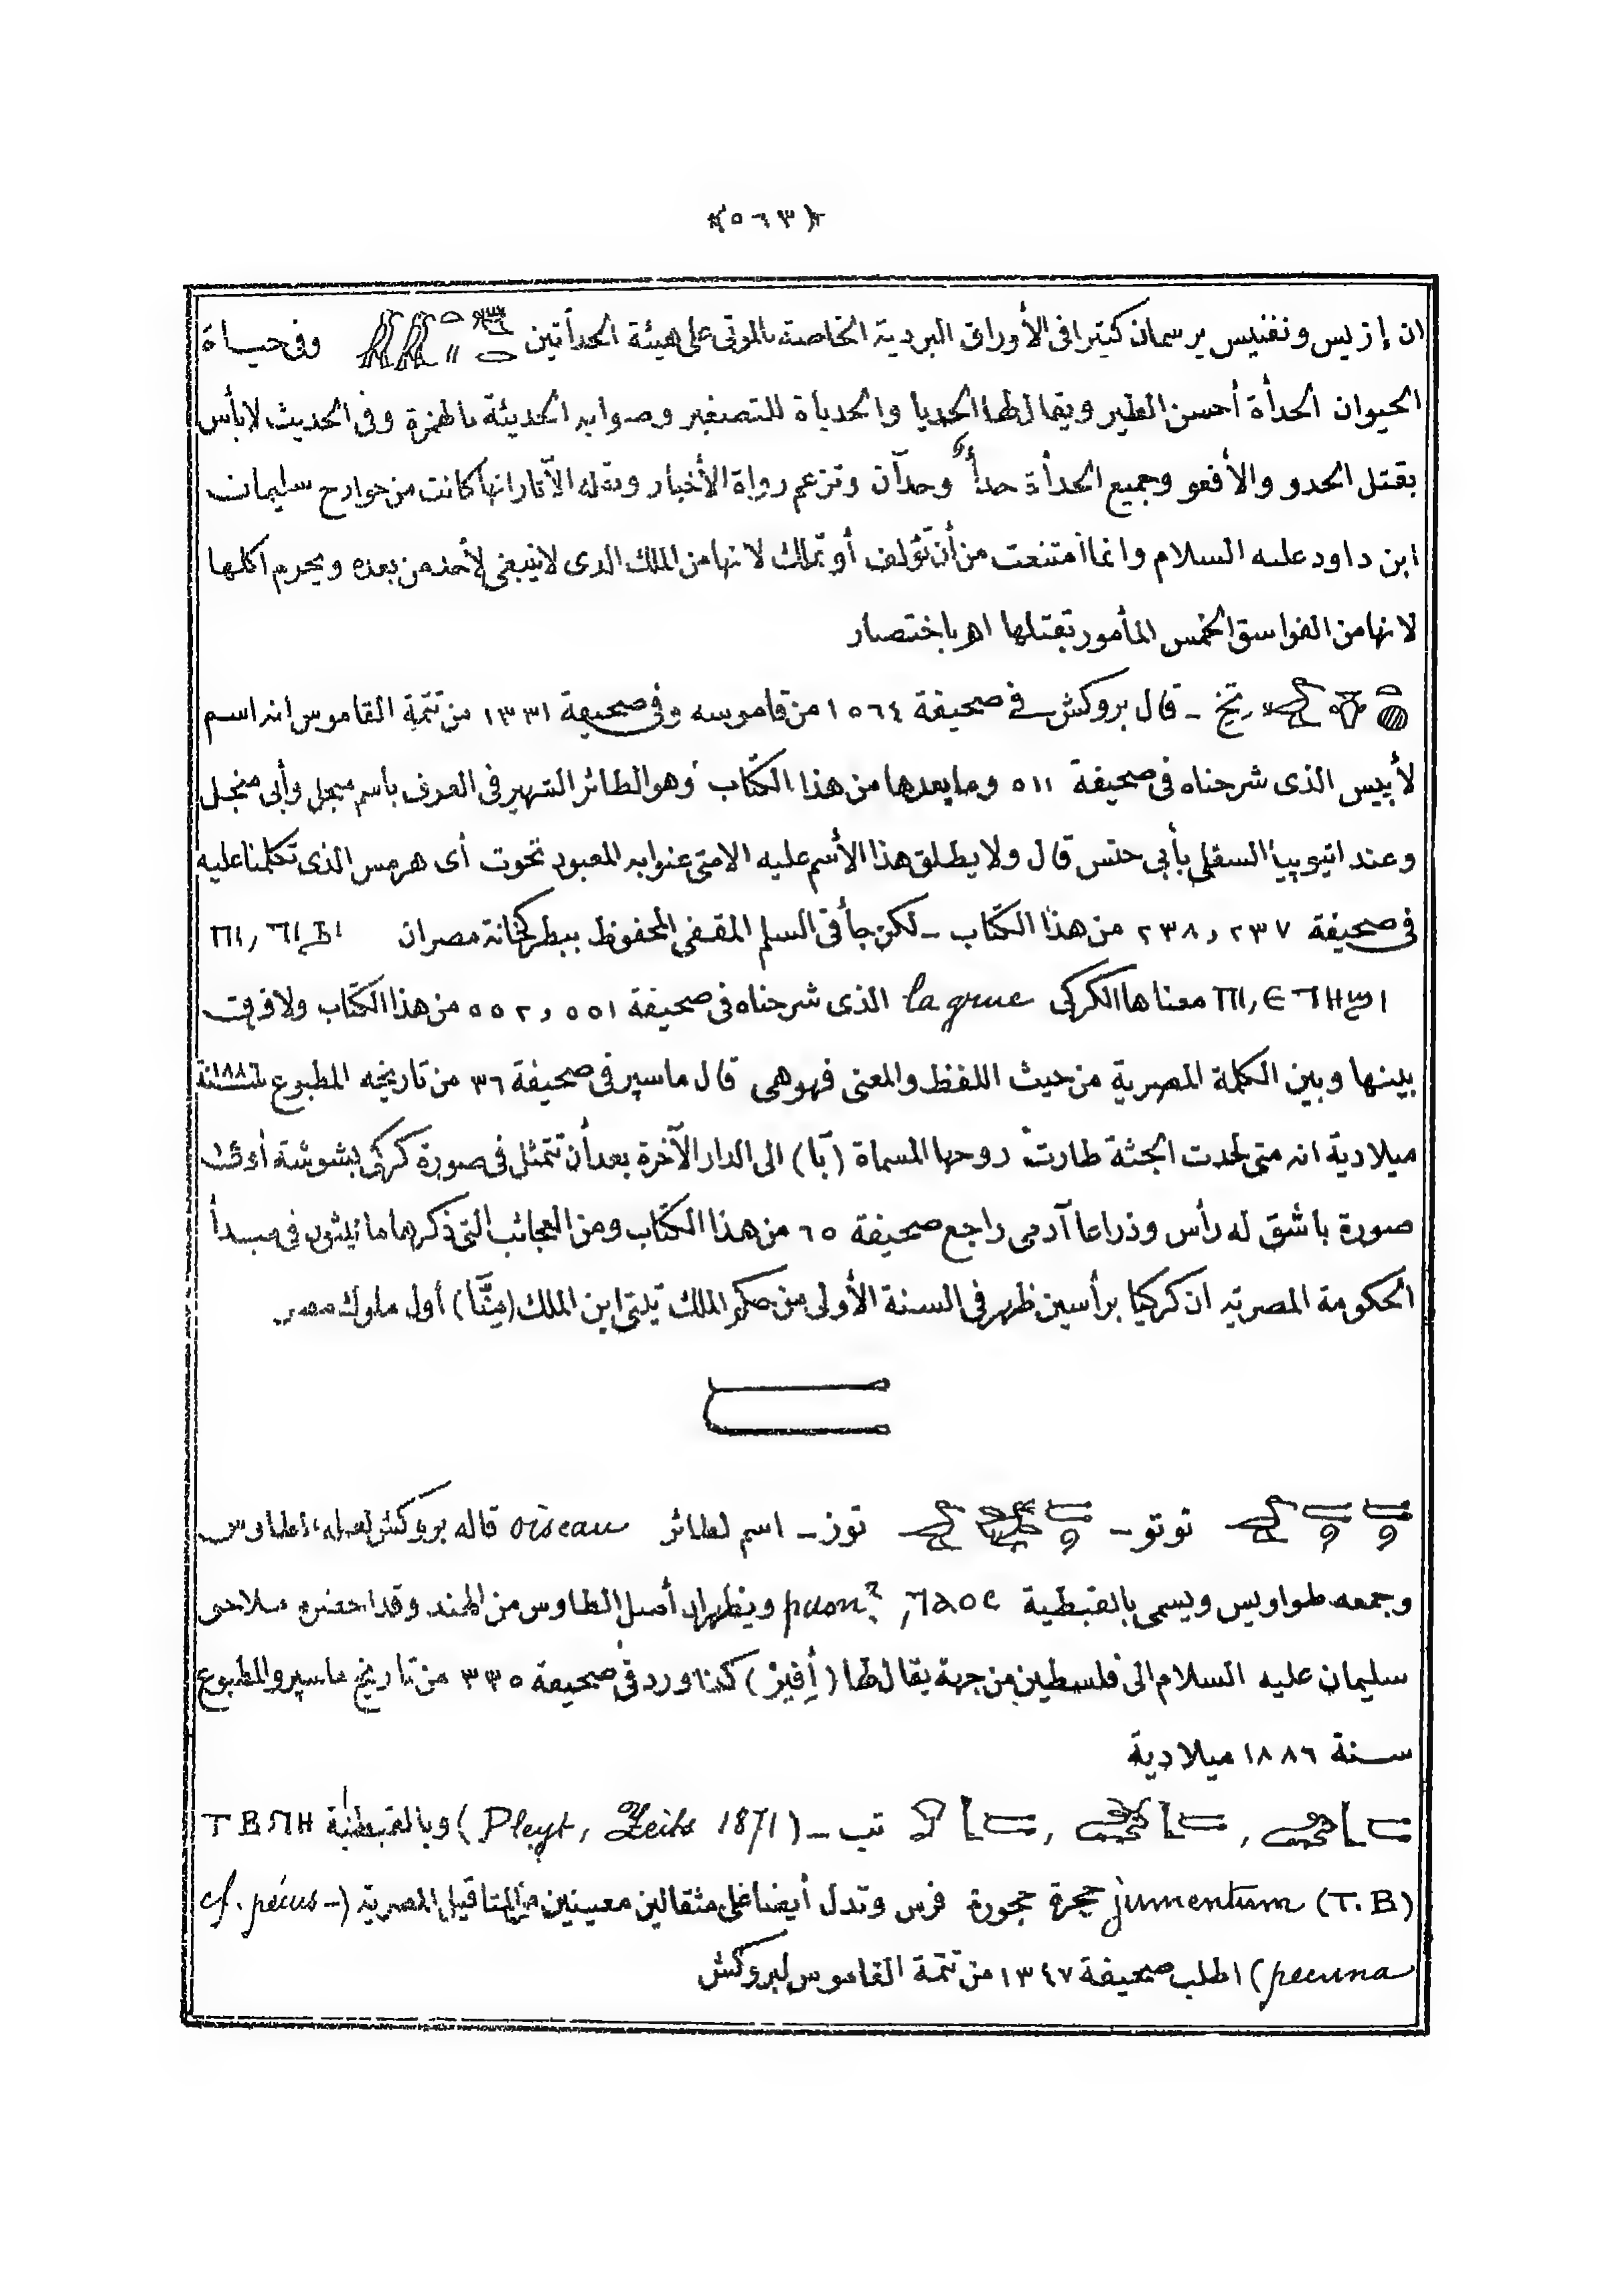 ﴿٥٦٣﴾
ان إزيس ونفنيس يرسمان كثيرا فى الأوراق البردية الخاصة بالموتى على هيئة الحدأتين وفى حياة
الحيوان الحدأة أحسن الطير ويقال لها الحديا والحدياة للتصغير وصوابه الحديئة بالهمزة وفى الحديث لا بأس
بقتل الحدو والأفعو وجميع الحدأة حدأ وحدآن وتزعم رواة الأخبار ونقله الآثار انها كانت من جوارح سليمان
ابن داود عليه السلام وانما أمتنعت من أن تؤلف أو تملك لانها من الملك الذى لا ينبغى لأحد من بعده ويحرم اكلها
لانها من الفواسق الخمس المأمور بقتلها اهر باختصار
تخ ـ قال بروكش فى صحيفة ١٥٦٤ من قاموسه وفى صحيفة ١٣٣١ من تتمة القاموس انه اسم
لأبيس الذى شرحناه فى صحيفة ٥١١ وما بعدها من هذا الكتاب وهو الطائر الشهير فى العرف باسم منجل وأبى منجل
وعند اتيوبيا السفلى بأبى حنس قال ولا يطلق هذا الأسم عليه الا متى عنوا به المعبود تحوت أى هرمس الذى تكلمنا عليه
فى صحيفة ٢٣٧ و ٢٣٨ من هذا الكتاب ـ لكن جأ فى السلم المقفى المحفوظ ببطركخانة مصر ان
معناها الكركى la grue الذى شرحناه فى صحيفة ٥٥١ و ٥٥٢ من هذا الكتاب ولا فرق
بينها وبين الكلمة المصرية من حيث اللفظ والمعنى فهو هى قال ماسپرو فى صحيفة ٣٦ من تاريخه المطبوع سنة ١٨٨٦
ميلادية انه متى لحدت الجثة طارت روحها المسماة (بَا) الى الدار الآخرة بعد أن تتمثل فى صورة كركى بشوشة أو فى
صورة باشق له رأس وذراعا آدمى راجع صحيفة ٦٥ من هذا الكتاب ومن العجائب التى ذكرها مانيثون فى مبدأ
الحكومة المصرية ان كركيا برأسين ظهر فى السنة الأولى من حكم الملك تيتى ابن الملك (مِنَّا) أول ملوك مصر
توتو ـ توز ـ اسم لطائر oiseau قاله بروكش لعله الطاوس
وجمعه طواويس ويسمى بالقبطية paon? ويظهر ان أصل الطاوس من الهند وقد احضره ملاحى
سليمان عليه السلام الى فلسطين من جهة يقال لها (أِفِيْر) كذا ورد فى صحيفة ٣٣٥ من تاريخ ماسپرو المطبوع
سنة ١٨٨٦ ميلادية
تب ـ (Pleyt, Zeits 1871) وبالقبطية ⲧⲃⲛⲏ
(T.B) jumentum حجرة حجورة فرس وتدل أيضا على مثقالين معينين من المثاقيل المصرية (cf. pécus-
pecuna) اطلب صحيفة ١٣٤٧ من تتمة القاموس لبروكش